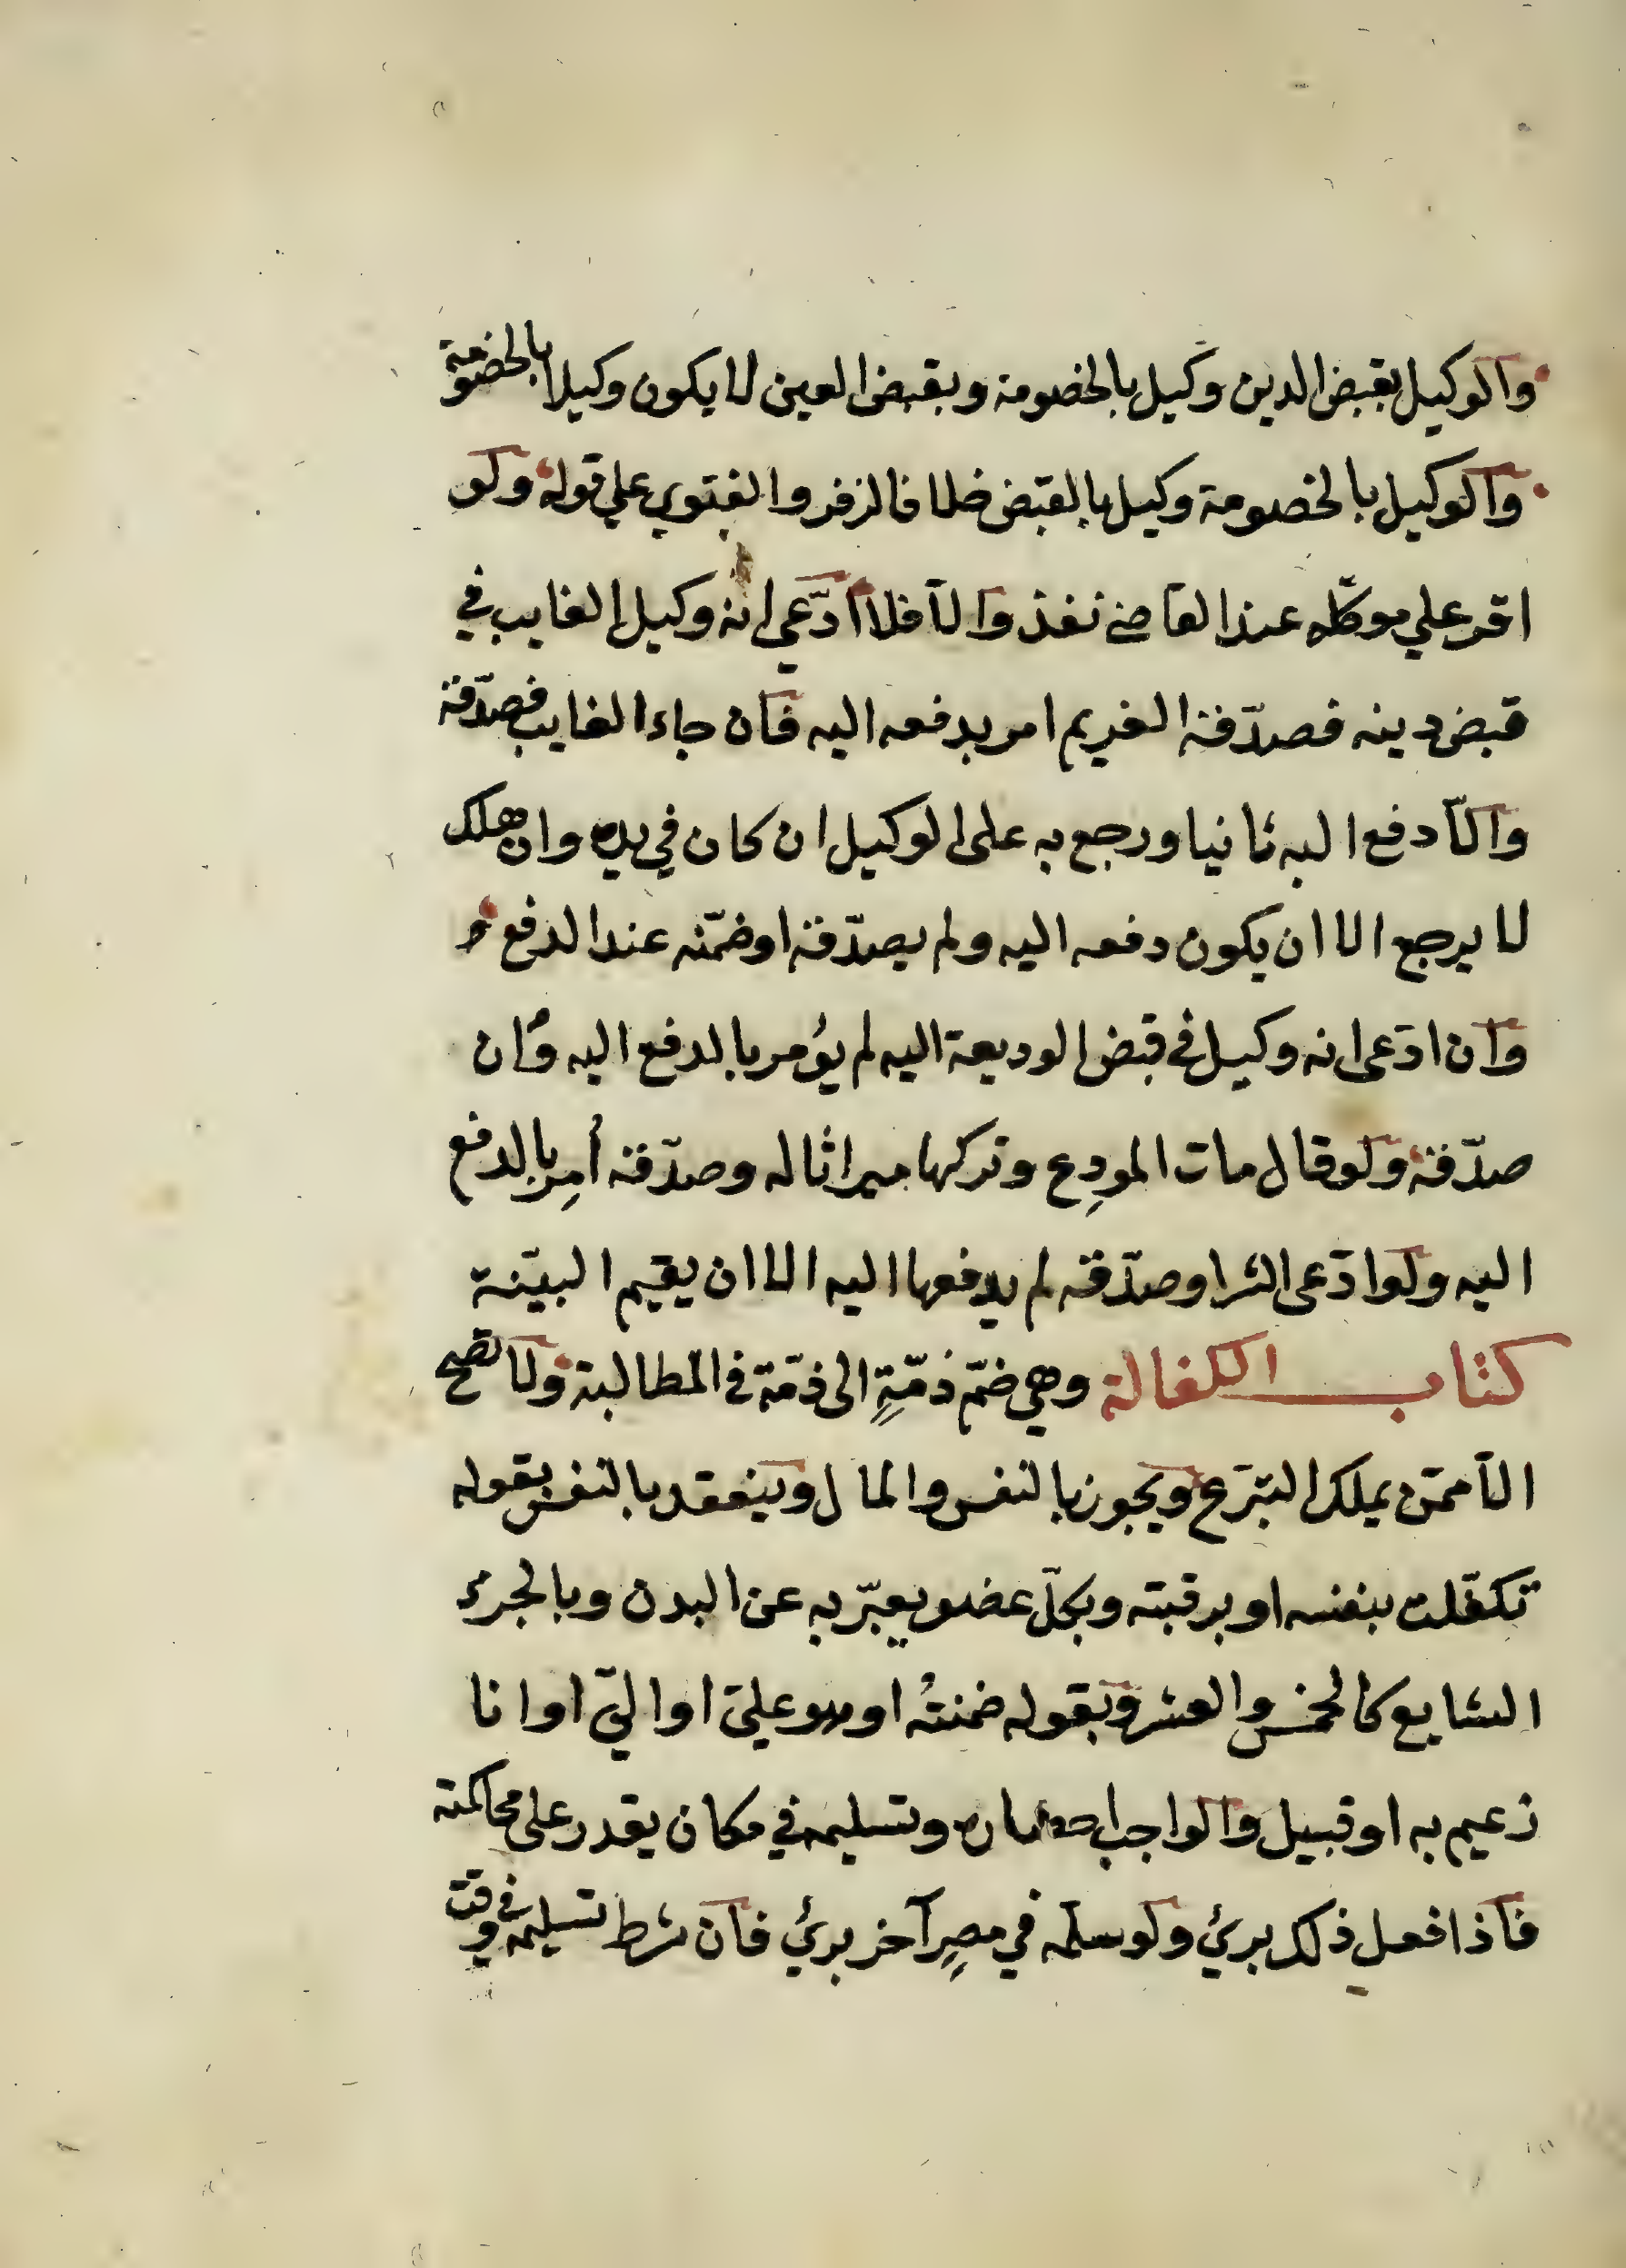 والوكيل بقبض الدين وكيل بالخصومة وبقبض العين لا يكون وكيلا بالخصومة
والوكيل بالخصومة وكيل بالقبض خلافا لزفر والفتوي علي قوله ولو
اقر علي موكله عند القاضي نفذ والّا فلا ادّعي انه وكيل الغايب في
قبض دينه فصدّقه الغريم امر بدفعه اليه فان جاء الغايب فصدّقه
والّا دفع اليه ثانيا ورجع به على الوكيل ان كان في يده وان هلك
لا يرجع الا ان يكون دفعه اليه ولم يصدّقه او ضمّنه عند الدفع
وان ادّعى انه وكيل في قبض الوديعة اليه لم يؤمر بالدفع اليه وان
صدّقه ولو قال مات المودِع وتركها ميراثا له وصدّقه أمِر بالدفع
اليه ولو ادّعى الشرا وصدّقه لم يدفعها اليه الا ان يقيم البيّنة
كتاب الكفالة وهي ضمّ ذمّةٍ الى ذمّة في المطالبة ولا تصح
الّا ممّن يملك التبرّع ويجوز بالنفس والمال وينعقد بالنفس بقوله
تكفّلت بنفسه او برقبته وبكلّ عضو يعبّر به عن البدن وبالجزء
الشايع كالخمس والعشر وبقوله ضمنتُه او هو عليّ او اليّ او انا
زعيم به او قبيل والواجب احضاره وتسليمه في مكان يقدر على محاكمته
فاذا فعل ذلك برئ ولو سلّمه في مصرٍ آخر برئ فان شرط تسليمه في وقت